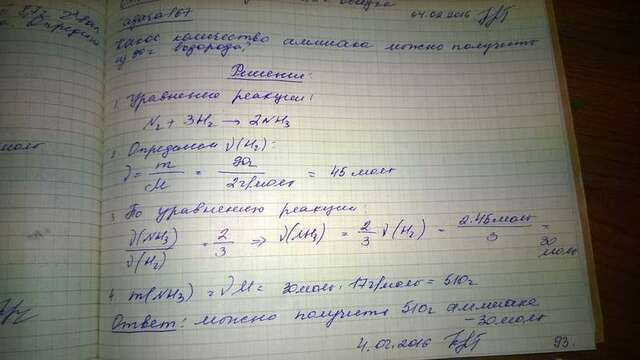 задача 167
04.02.2016
Какое количество аммиака можно получить
из 90г водорода?
Решение:
1. Уравнение реакции:
N₂ + 3H₂ → 2NH₃
2. Определяем ν(H₂):
ν = m/M = 90г/2г/моль = 45 моль
3. По уравнению реакции:
ν(NH₃)/ν(H₂) = 2/3 ⇒ ν(NH₃) = 2/3 ν(H₂) = 2·45моль/3 = 30 моль
4. m(NH₃) = ν M = 30моль · 17г/моль = 510г
Ответ: можно получить 510г аммиака
- 30моль
4.02.2016
93.